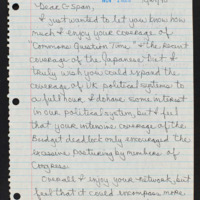 Dear C-Span,
I just wanted to let you know how
much I enjoy your coverage of
Commons Question Time & the recent
coverage of the Japanese Diet. I
truly wish you could expand the
coverage of UK political systems to
a full hour. I do have some interest
in our political system, but I feel
that your intensive coverage of the
Budget deadlock only encouraged the
excessive posturing by members of
Congress.
Overall I enjoy your network, but
feel that it could encompass more